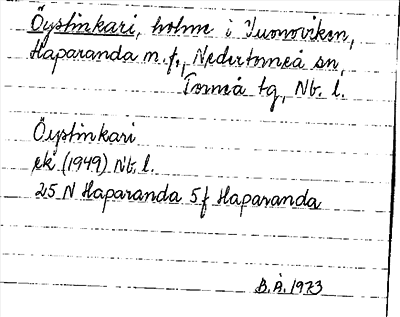 Öystinkari, holme i Tuonoviken,
Haparanda m.f., Nedertorneå sn,
Torneå tg, Nb. l.
Öystinkari
ek (1949) Nb. l.
25 N Haparanda 5 f Haparanda
B.Å. 1973